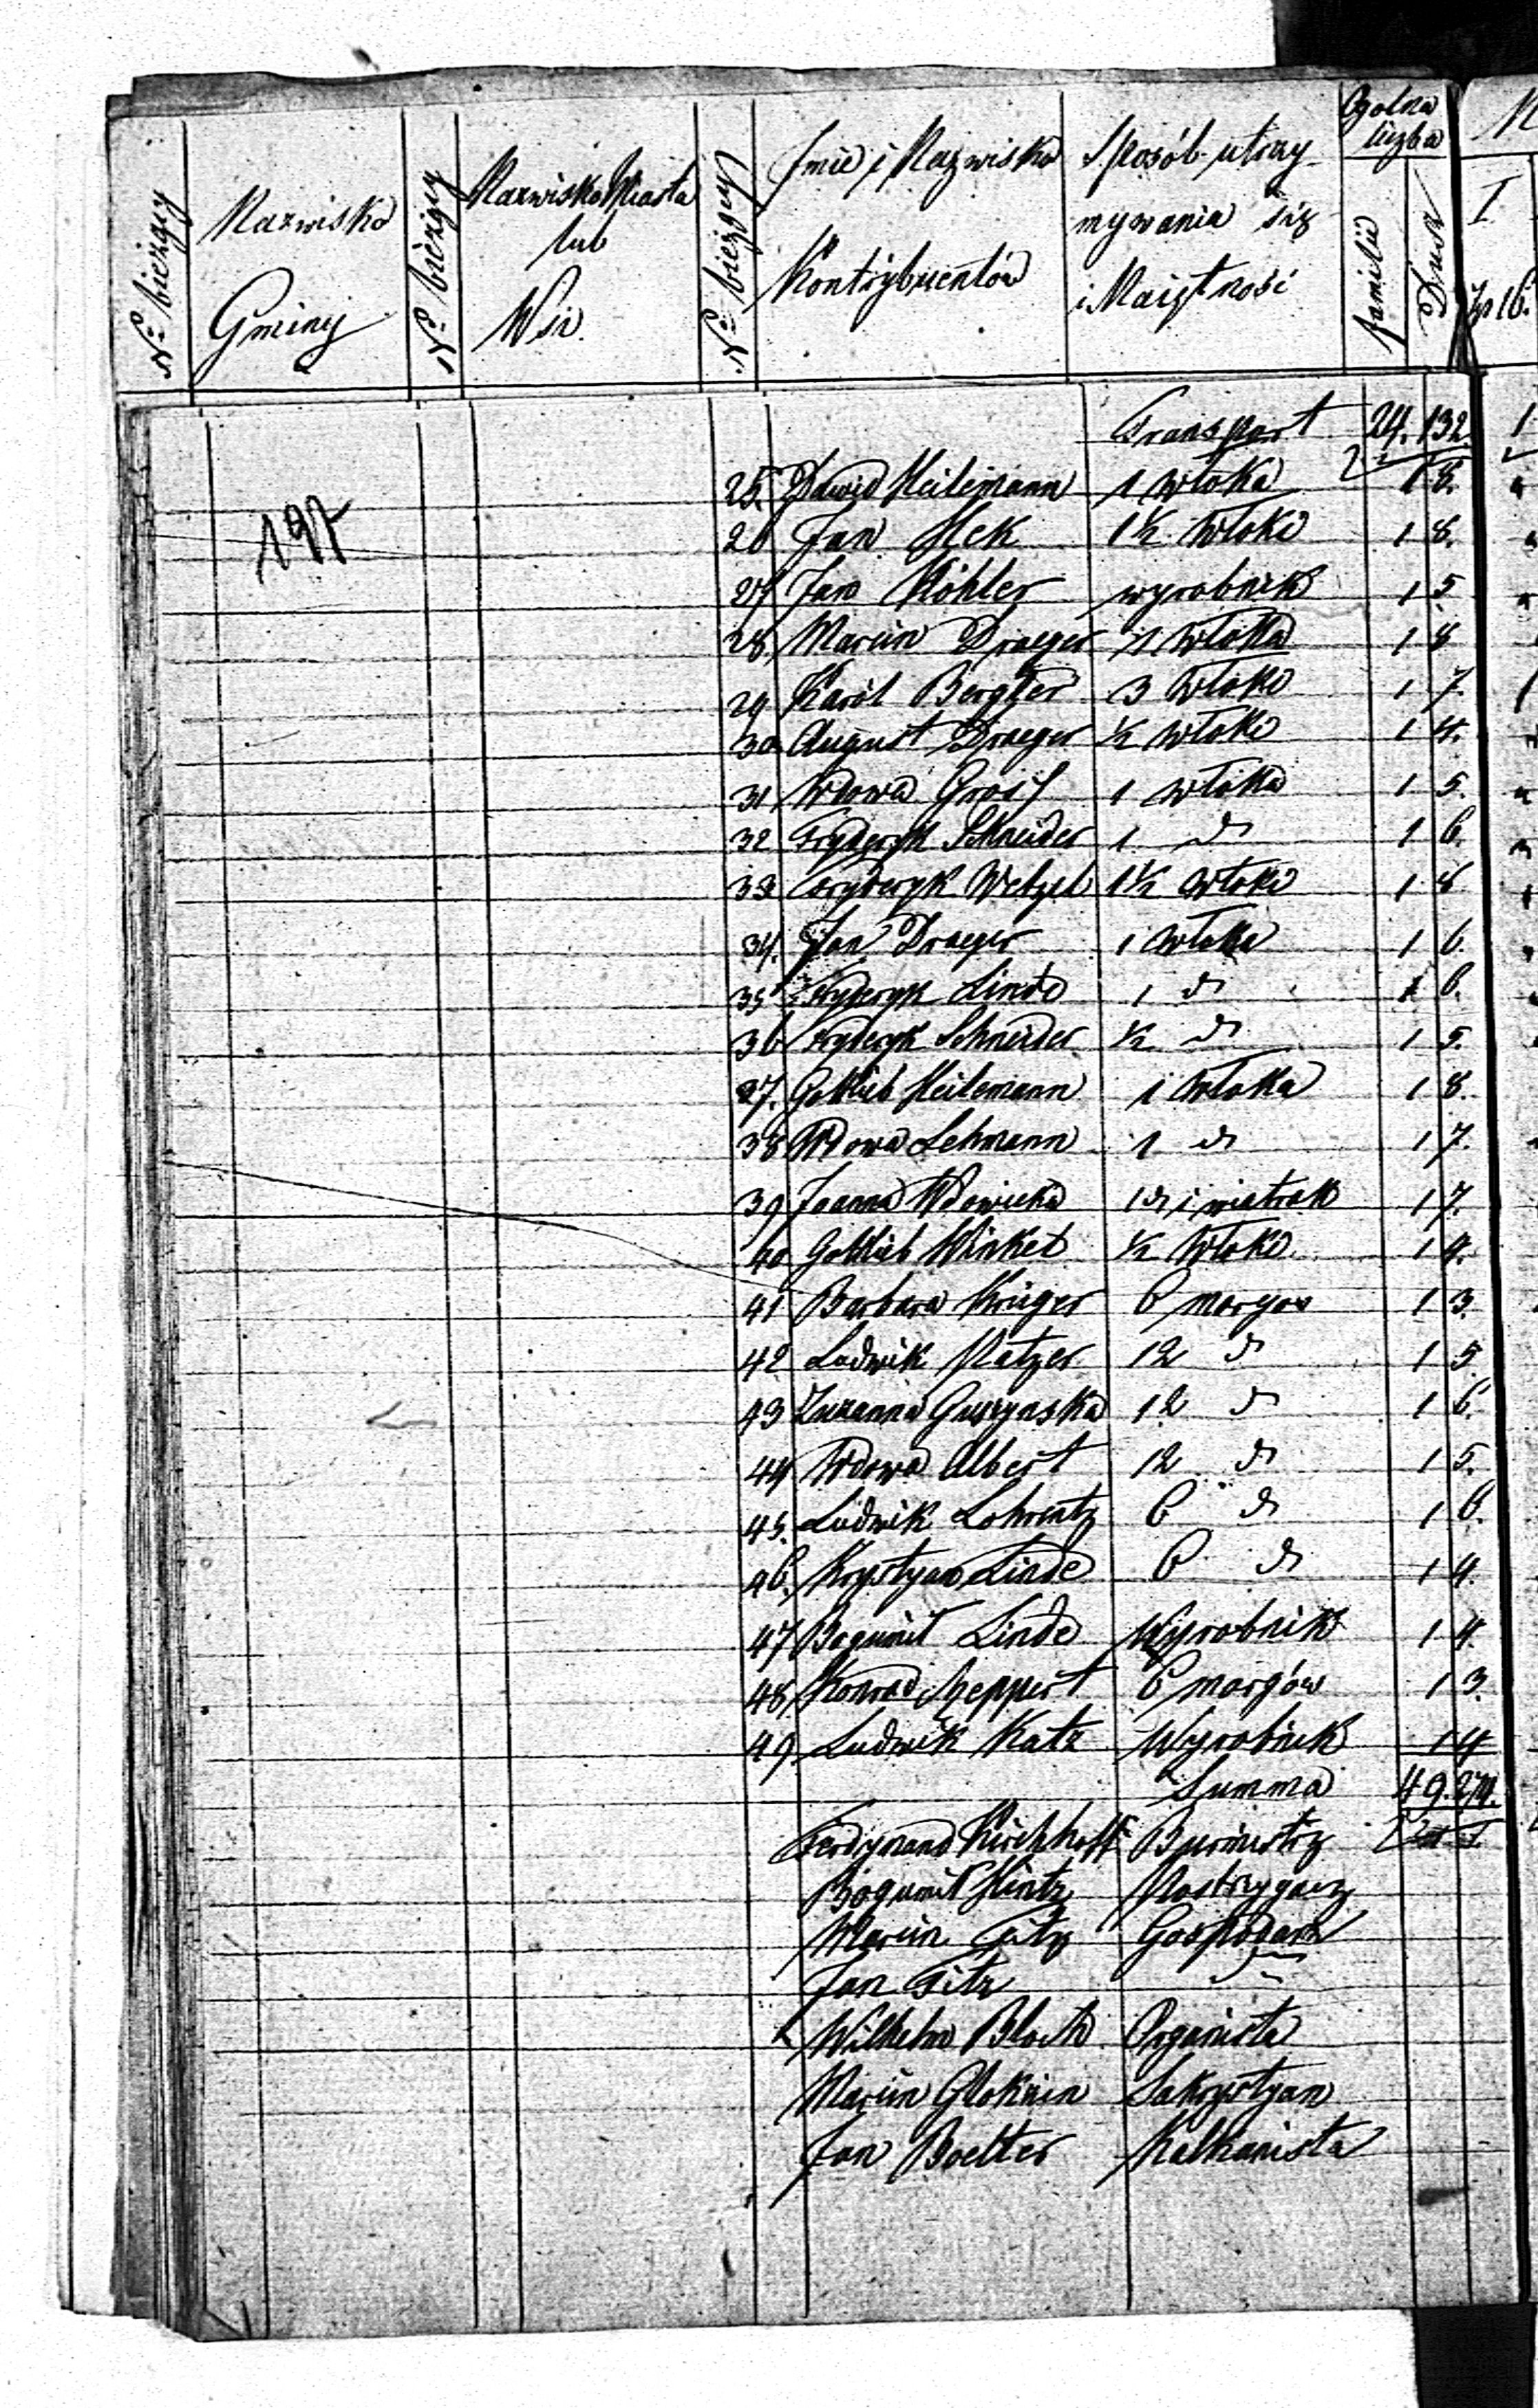 Ogolna
liczba
M
No bieżący
Nazwisko
Gminy
No bieżący
Nazwisko Miasta
lub
Wsi.
No bieżący
Jmie i Nazwisko
Kontrybuentów
Sposób utrzy-
mywania się
i Maiętność
familii
Dusz
I
Transport 24. 132.
197
25. Dawid Heilemann 1 włoka 1 8.
26 Jan Hek 1½ włoki 1 8.
27 Jan Köhler wyrobnik 1 5
28. Marcin Draeger 1 włoka 1 8
29 Karol Bergker 3 włoki 1 7.
30 August Draeger ½ włoki 1 4.
31 Wdowa 1 włoka 1 5.
32 Fryderyk Schneider 1 d 1 6.
33 Fryderyk Wetzel 1½ włoki 1 8
34. Jan Draeger 1 włoka 1 6
35 Fryderyk Linde 1 d 1 6.
36 Fryderyk Schneider ½ d 1 5.
37. Gottlieb Heilemann 1 włoka 1 8.
38 Wdowa Lehmann 1 d 1 7.
39 Joanna Wdowicka 1 d i wiatrak 1 7.
40 Gottlieb Winkel ½ włoki 1 4.
41 Barbara Krüger 6 morgów 1 3.
42 Ludwik Ratzer 12 d 1 5
43 Zuzanna Guszynska 12 d 1 6.
44 Wdowa Albert 12 d 1 5.
45. Ludwik Lohrentz 6 d 1 6.
46. Krystyan Linde 6 d 1 4.
47 Bogumił Linde Wyrobnik 1 4
48. Konrad Szeppert 6 morgów 1 3.
49. Ludwik Katz Wyrobnik 1 4
Summa 49. 274.
Ferdynand Kirchhoff Burmistrz
Bogumił Hintz
Marcin Titz Gospodarz
Jan Titz
Wilhelm Block Organista
Marcin Glokzin Sakrystyan
Jan Boelter Kalkanista